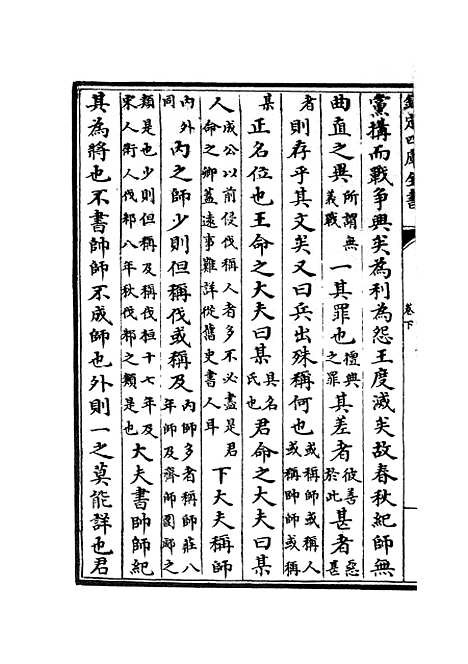 欽定四庫全書 卷下
黨搆而戰争興矣為利為怨王度滅矣故春秋紀師無
曲直之異所謂無義戰一其罪也擅興之罪其差者彼善於此甚者惡甚
者則存乎其文矣又曰兵出殊稱何也或稱師或稱人或稱帥師或稱
某正名位也王命之大夫曰某具名氏也君命之大夫曰某
人成公以前侵伐稱人者多不必盡是君命之卿蓋遠事難詳從舊史書人耳下大夫稱師
内外同内之師少則但稱伐或稱及内師多者稱師莊八年師及齊師圍郕之
類是也少則但稱及稱伐桓十七年及宋人衛人伐邾八年秋伐邾之類是也大夫書帥師紀
其為將也不書帥師不成師也外則一之莫能詳也君